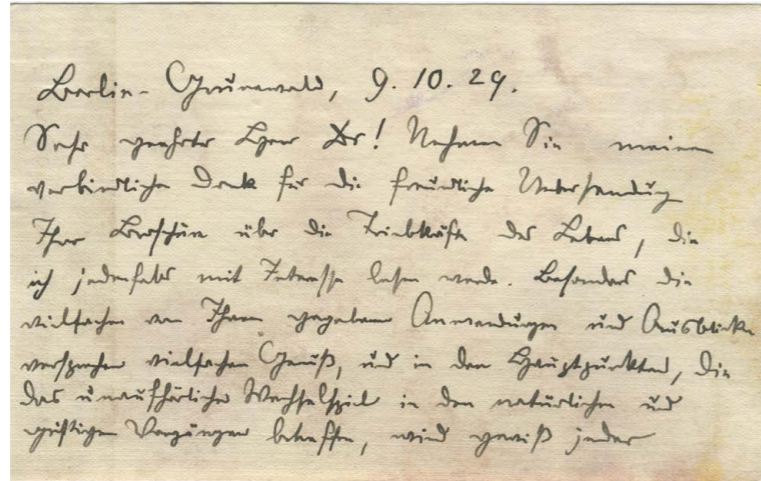 Berlin-Grunewald, 9. 10. 29.
Sehr geehrter Herr Dr! Nehmen Sie meinen
verbindlichen Dank für die freundliche Übersendung
Ihrer Broschüre über die Triebkräfte des Lebens, die
ich jedenfalls mit Interesse lesen werde. Besonders die
vielfachen von Ihnen gegebenen Anwendungen und Ausblicke
versprechen vielfachen Genuß, und in den Hauptpunkten, die
das unaufhörliche Wechselspiel in den natürlichen und
geistigen Vorgängen betreffen, wird gewiß jeder